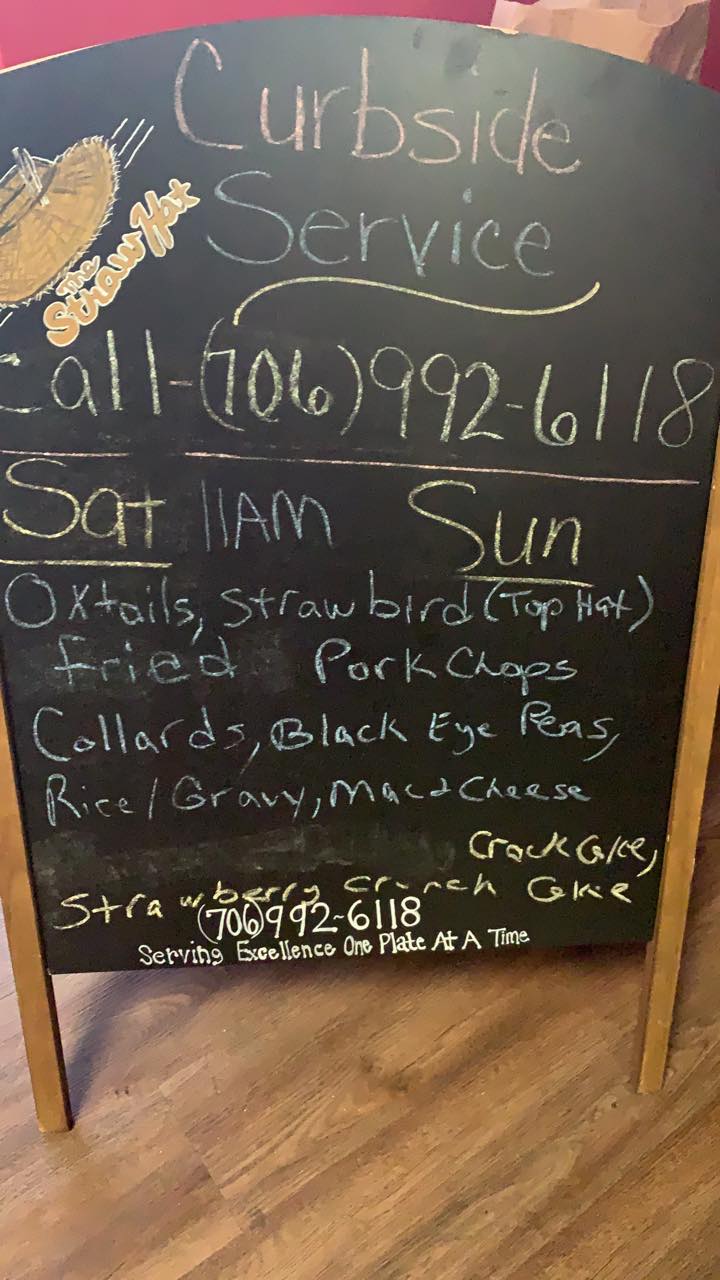 Curbside
Service
The
Straw Hat
Call-(706)992-6118
Sat 11AM Sun
Oxtails, Strawbird (Top Hat)
Fried Pork Chops
Collards, Black Eye Peas,
Rice/Gravy, Mac & Cheese
Crack Cake,
Strawberry Crunch Cake
(706)992-6118
Serving Excellence One Plate At A Time